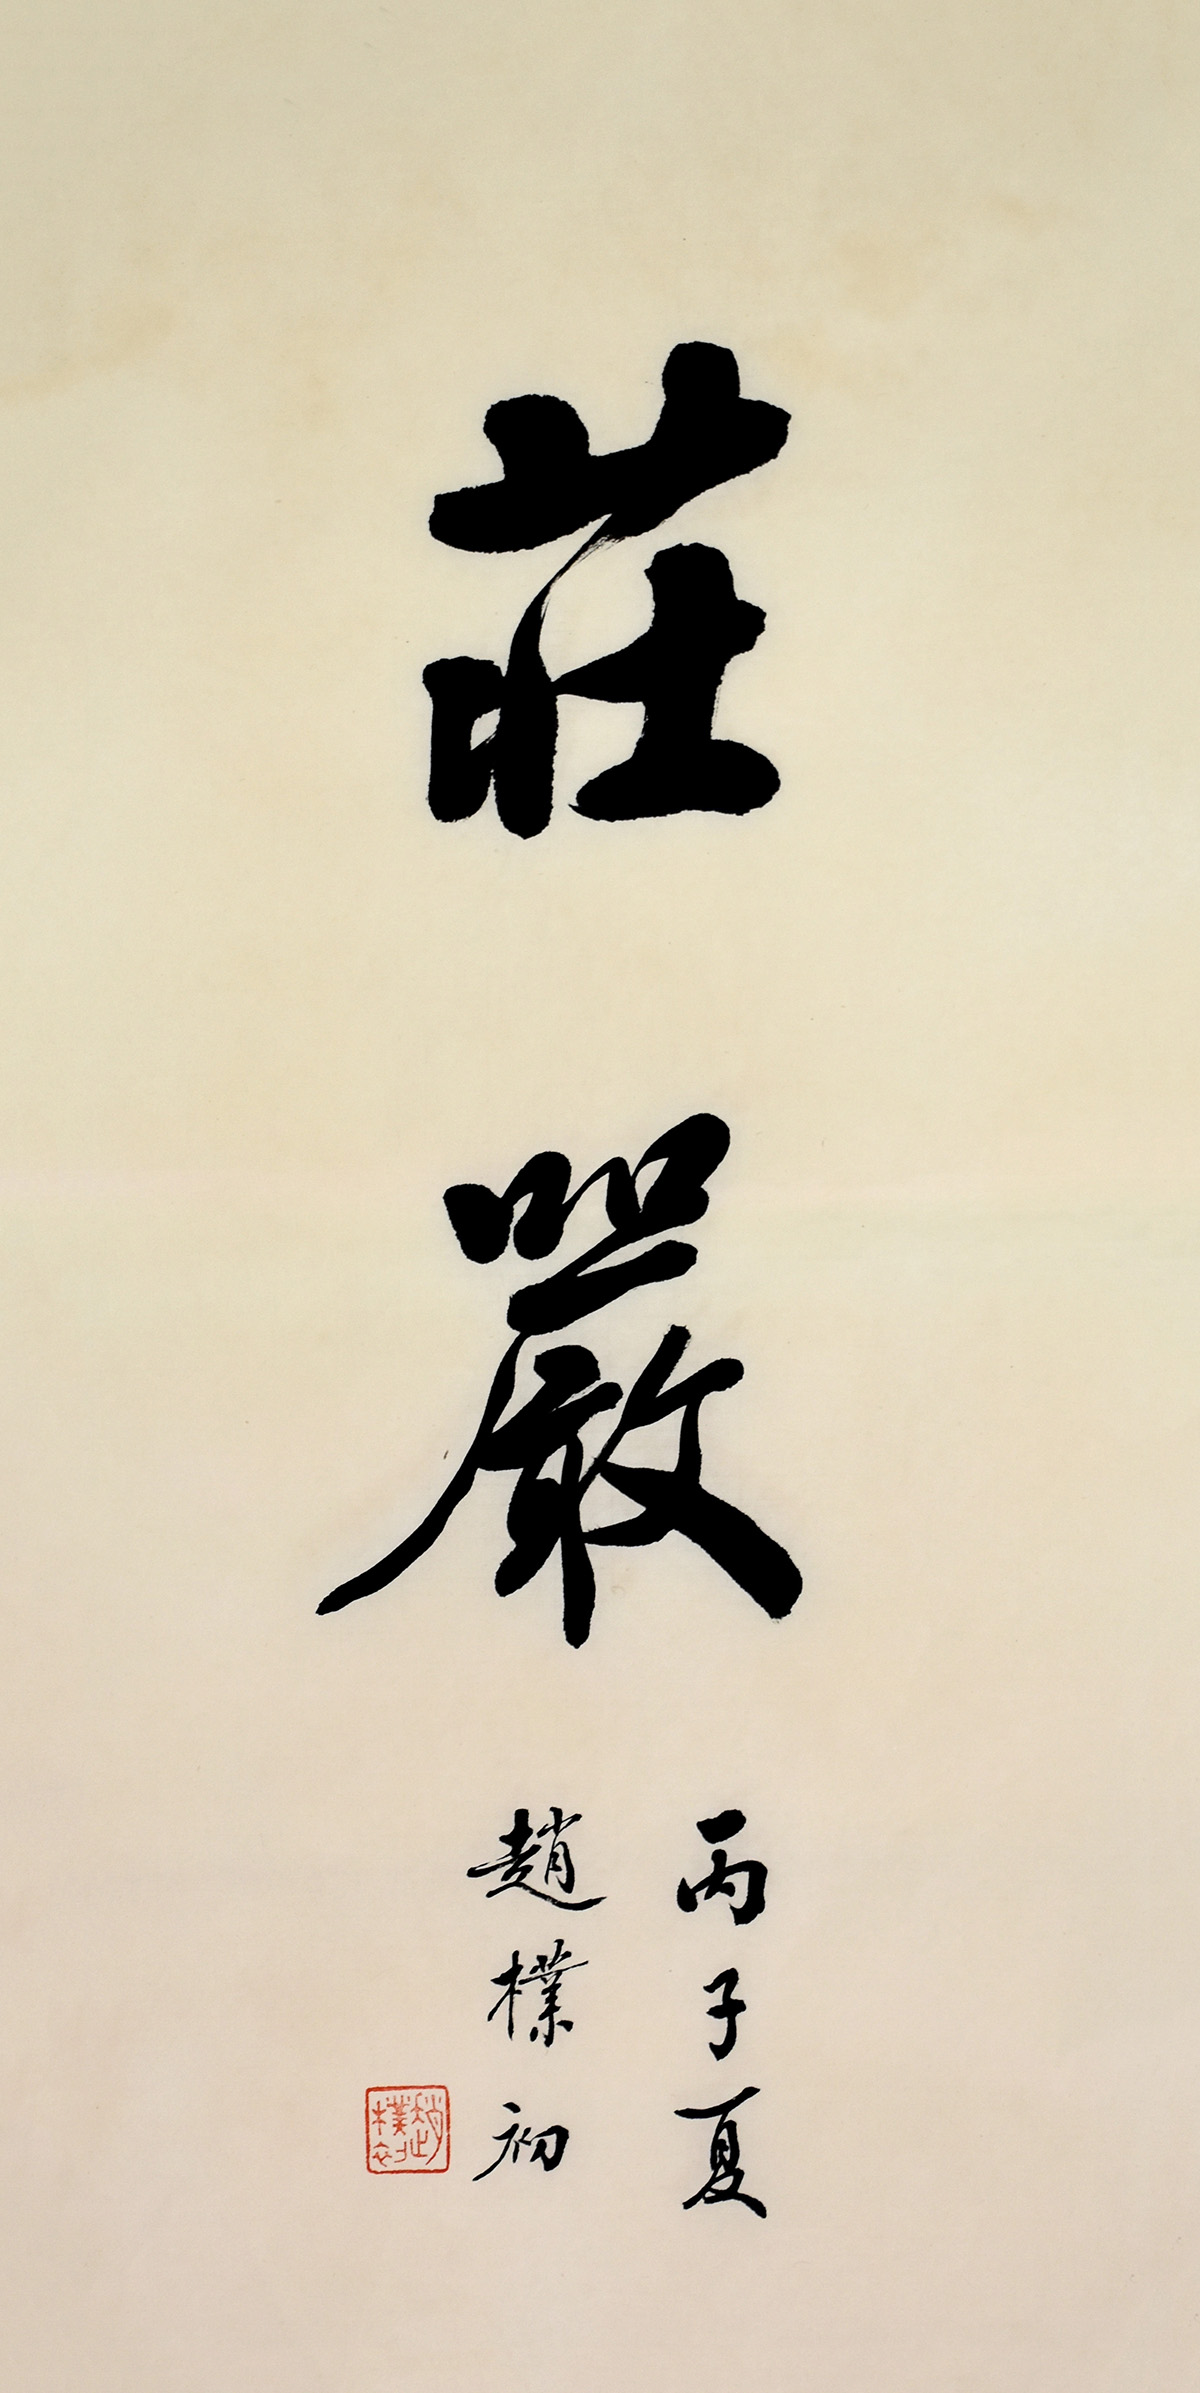 莊嚴
丙子夏
趙樸初
趙樸初